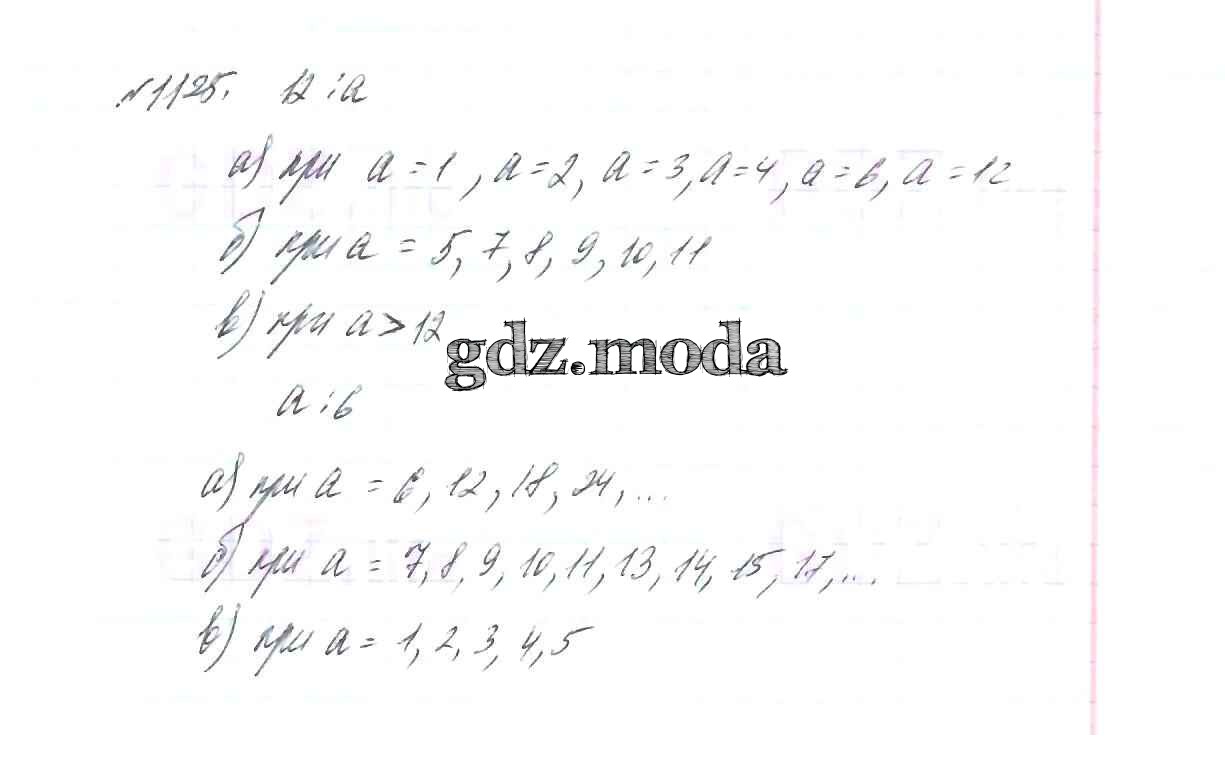 №1125. 12 : a
а) при a = 1, a = 2, a = 3, a = 4, a = 6, a = 12
б) при a = 5, 7, 8, 9, 10, 11
в) при a > 12
gdz.moda
a : 6
а) при a = 6, 12, 18, 24, ...
б) при a = 7, 8, 9, 10, 11, 13, 14, 15, 17, ...
в) при a = 1, 2, 3, 4, 5